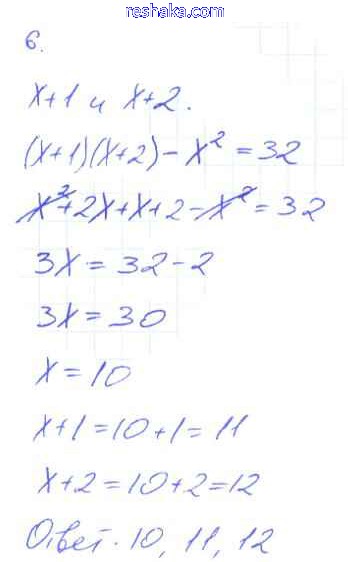 reshaka.com
6.
x+1 и x+2.
(x+1)(x+2)-x²=32
x²+2x+x+2-x²=32
3x=32-2
3x=30
x=10
x+1=10+1=11
x+2=10+2=12
Ответ. 10, 11, 12